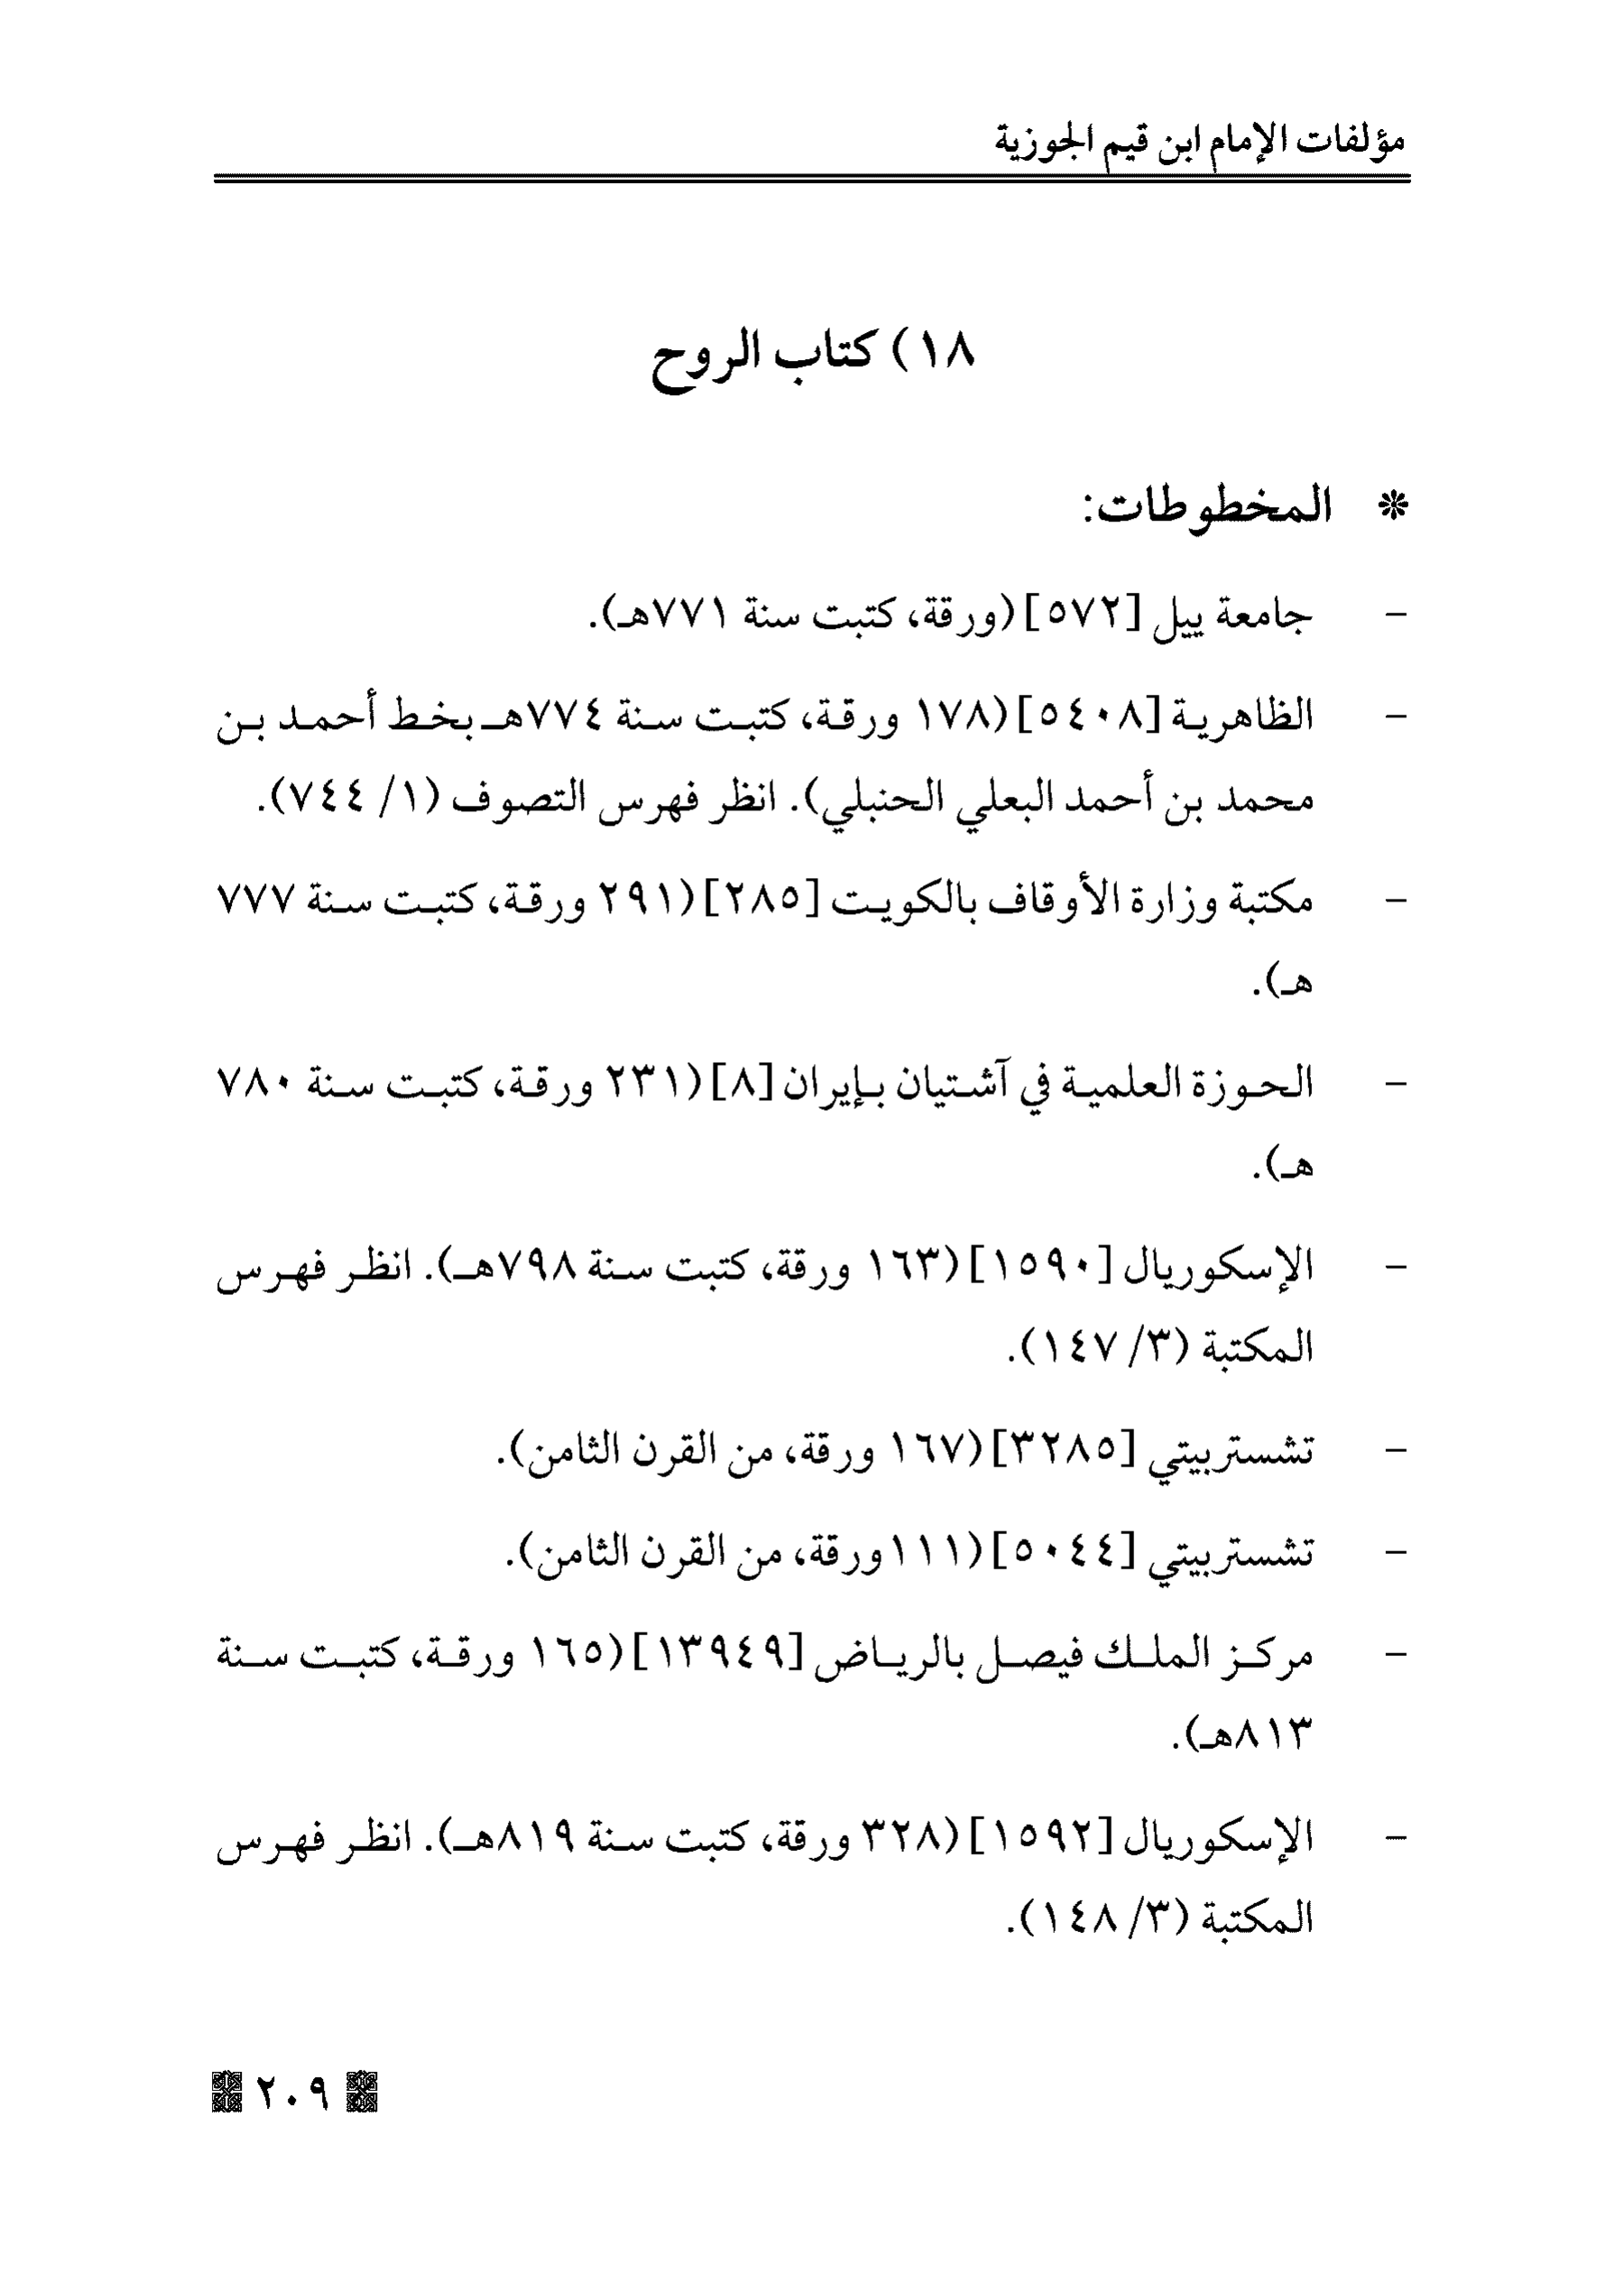 مؤلفات الإمام ابن قيم الجوزية
١٨) كتاب الروح
* المخطوطات:
- جامعة ييل [٥٧٢] (ورقة، كتبت سنة ٧٧١هـ).
- الظاهرية [٥٤٠٨] (١٧٨ ورقة، كتبت سنة ٧٧٤هـ بخط أحمد بن
محمد بن أحمد البعلي الحنبلي). انظر فهرس التصوف (١/ ٧٤٤).
- مكتبة وزارة الأوقاف بالكويت [٢٨٥] (٢٩١ ورقة، كتبت سنة ٧٧٧
هـ).
- الحوزة العلمية في آشتيان بإيران [٨] (٢٣١ ورقة، كتبت سنة ٧٨٠
هـ).
- الإسكوريال [١٥٩٠] (١٦٣ ورقة، كتبت سنة ٧٩٨هـ). انظر فهرس
المكتبة (٣/ ١٤٧).
- تشستربيتي [٣٢٨٥] (١٦٧ ورقة، من القرن الثامن).
- تشستربيتي [٥٠٤٤] (١١١ورقة، من القرن الثامن).
- مركز الملك فيصل بالرياض [١٣٩٤٩] (١٦٥ ورقة، كتبت سنة
٨١٣هـ).
- الإسكوريال [١٥٩٢] (٣٢٨ ورقة، كتبت سنة ٨١٩هـ). انظر فهرس
المكتبة (٣/ ١٤٨).
٢٠٩